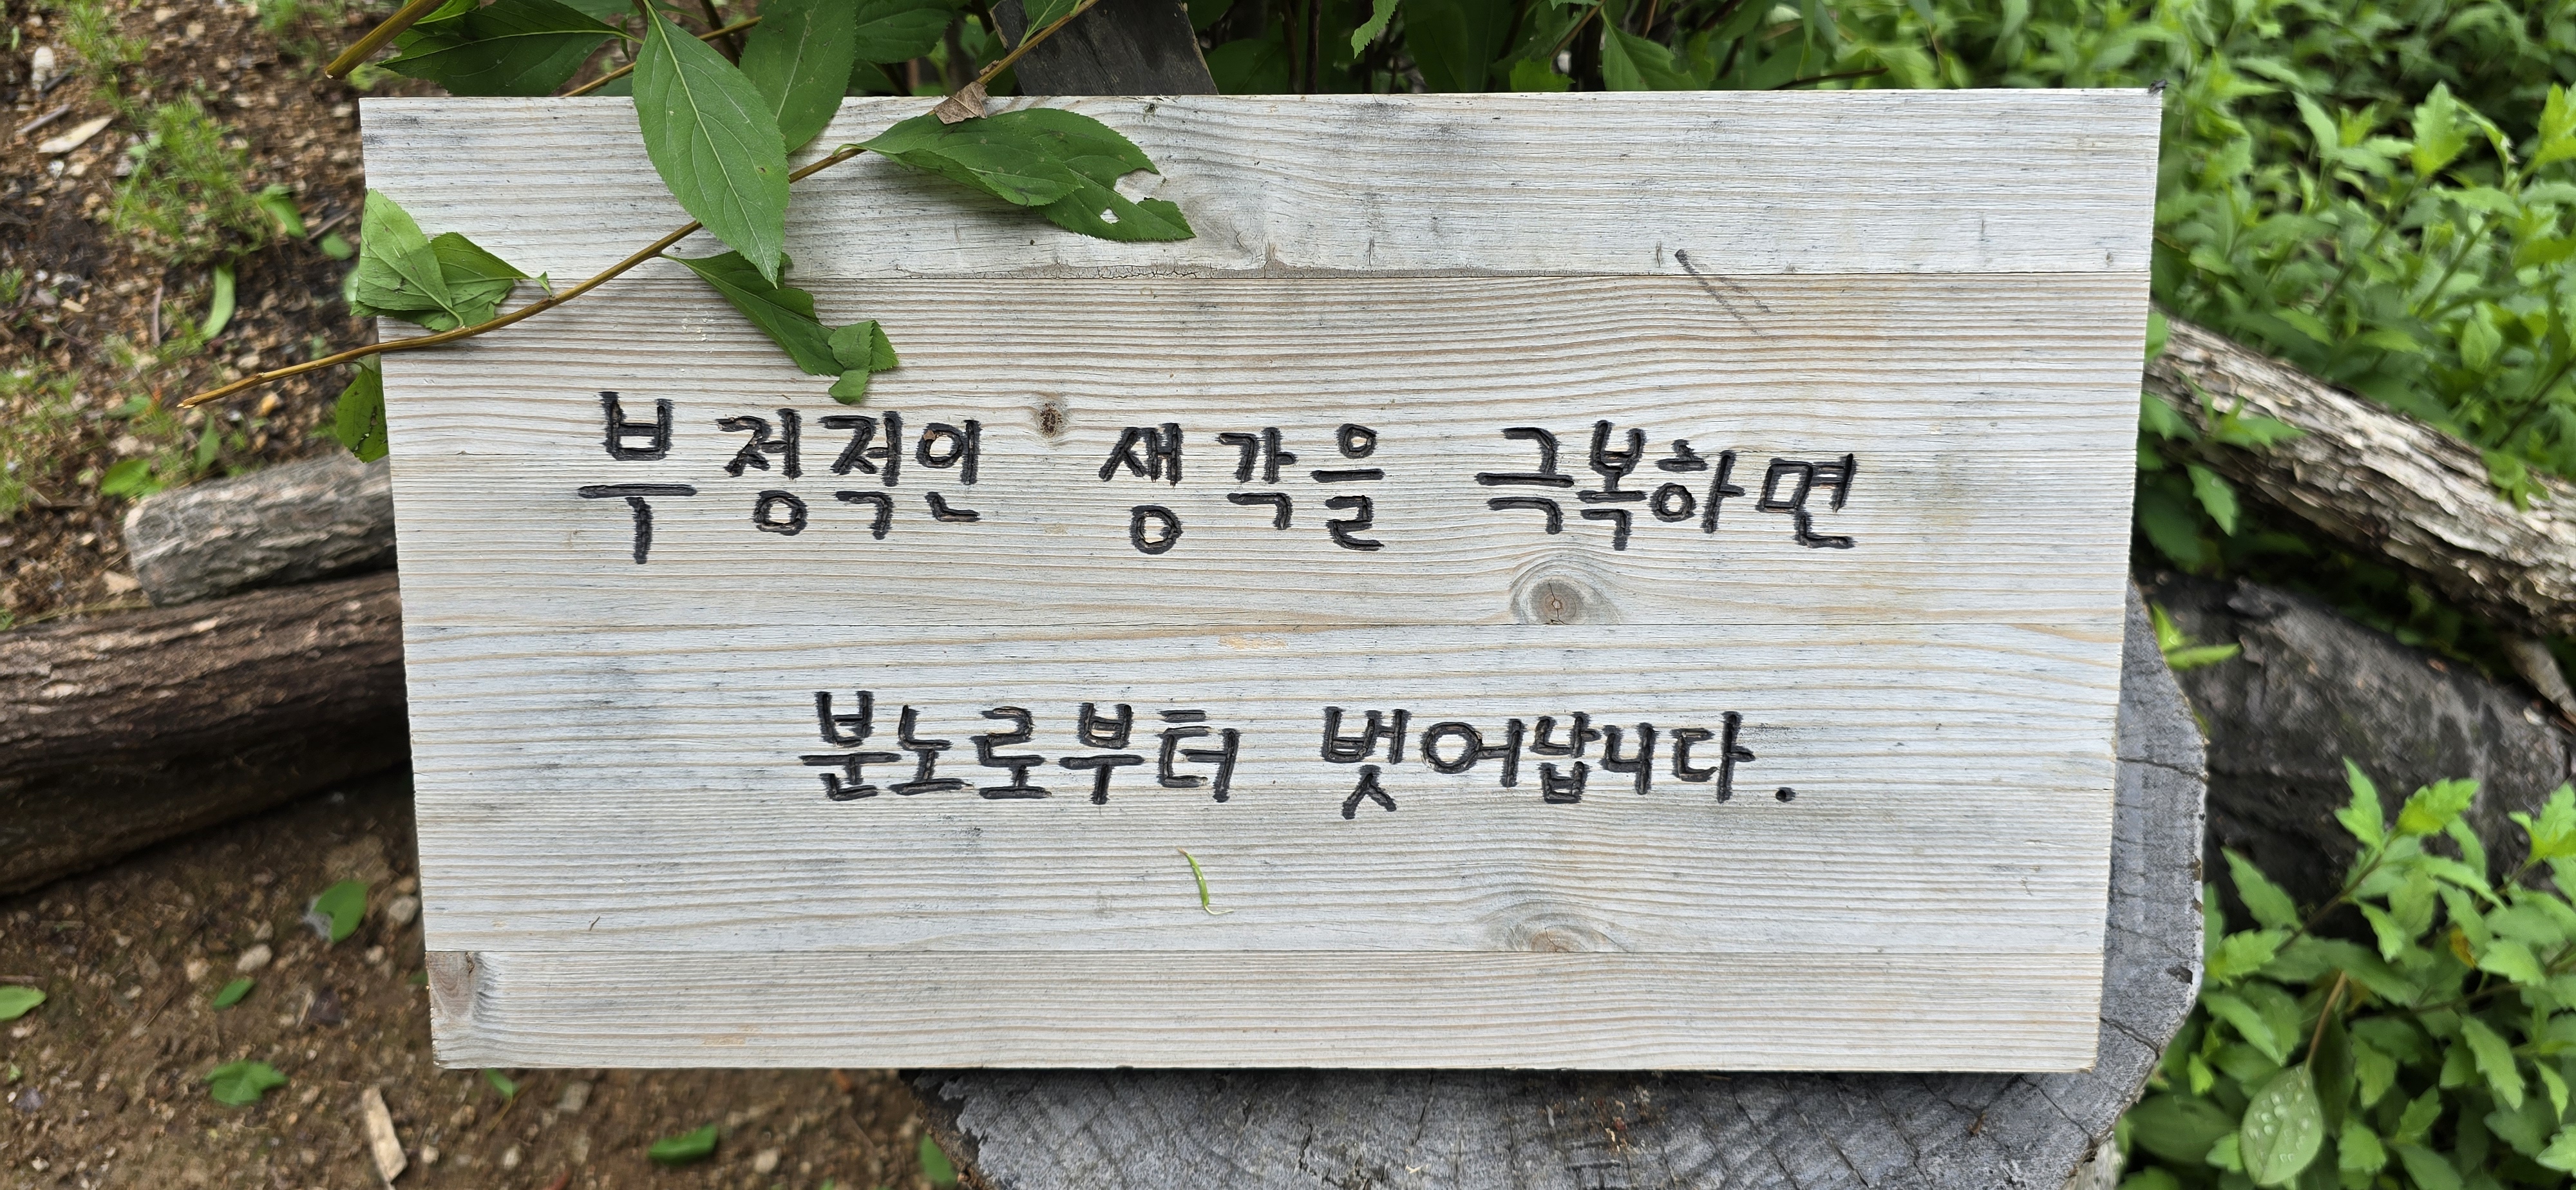 부정적인 생각을 극복하면
분노로부터 벗어납니다.